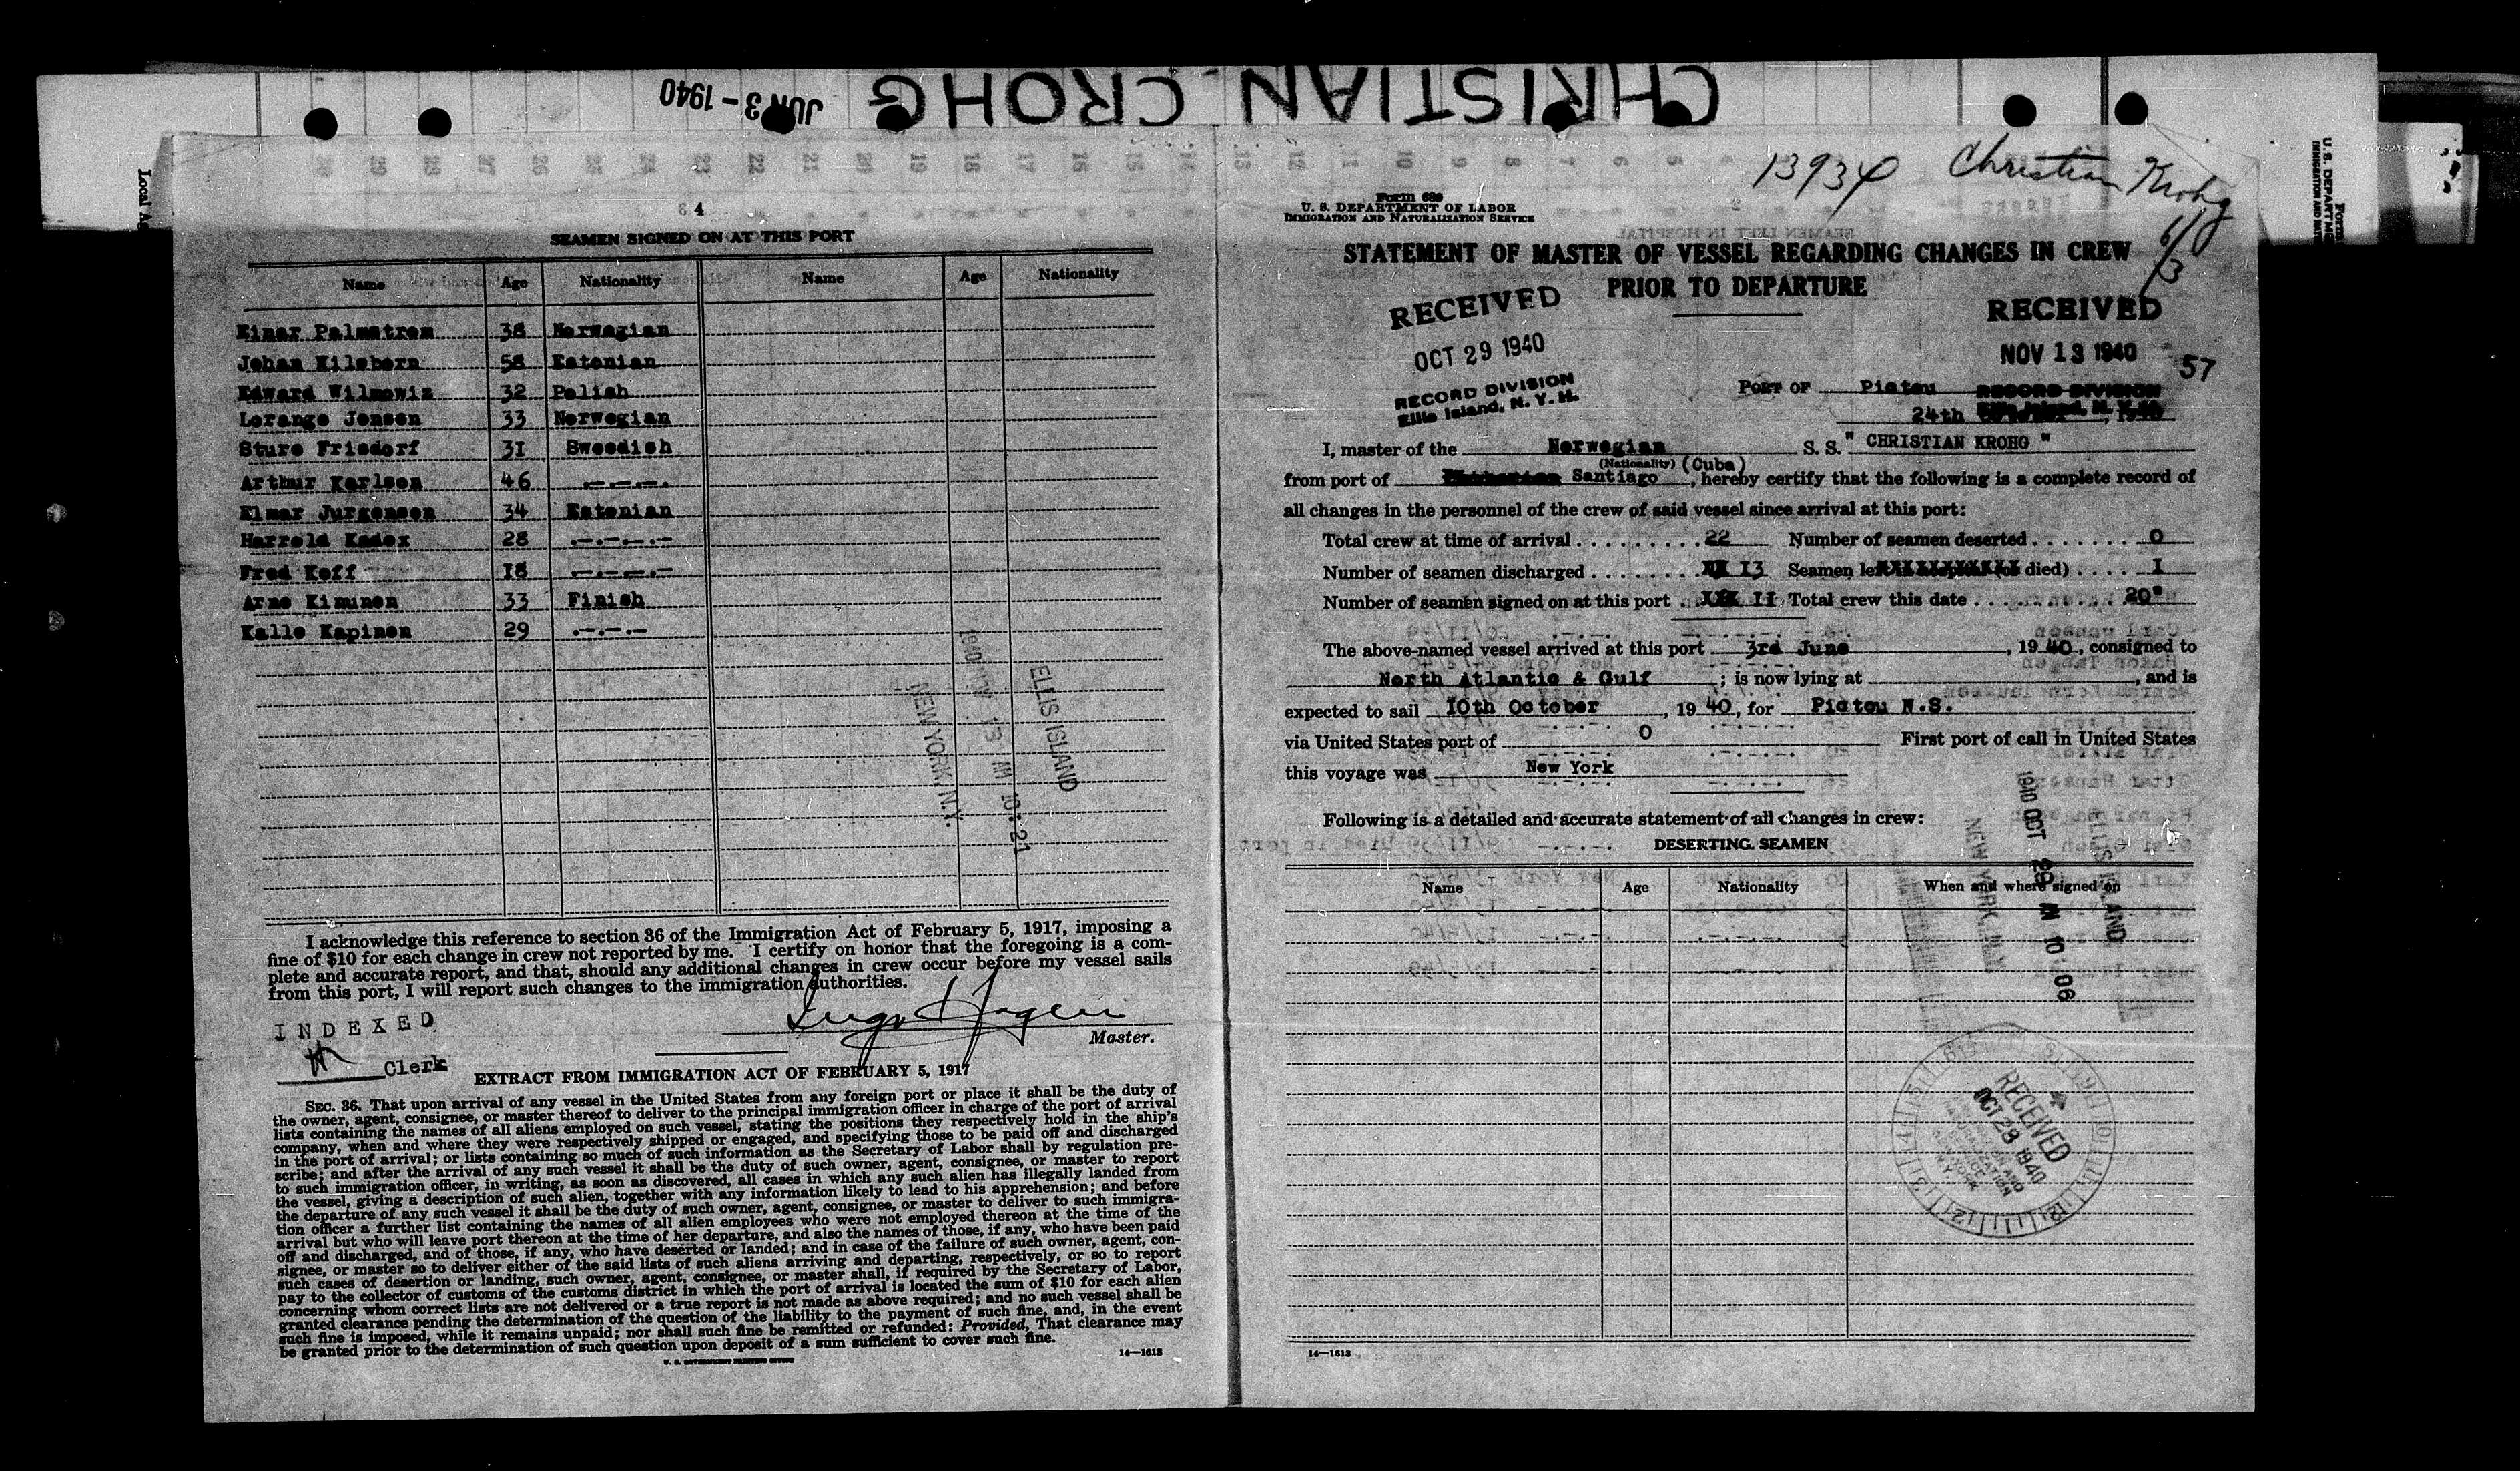 CHRISTIAN CROHG
JUN 3 - 1940
4
SEAMEN SIGNED ON AT THIS PORT
Name Age Nationality Name Age Nationality
Einar Palmstrom 38 Norwegian
Johan Kilsborn 58 Estonian
Edward Wilmowiz 32 Polish
Lorange Jensen 33 Norwegian
Sture Frisdorf 31 Sweedish
Arthur Karlson 46 -.-.-.
Elmar Jurgensen 34 Estonian
Harrold Kadex 28 -.-.-.-
Fred Koff 18 -.-.-.-
Arne Kimunen 33 Finish
Kalle Kapinen 29 .-.-.-
1940 NOV 13 AM 10:21
ELLIS ISLAND
NEW YORK, N.Y.
I acknowledge this reference to section 36 of the Immigration Act of February 5, 1917, imposing a
fine of $10 for each change in crew not reported by me. I certify on honor that the foregoing is a com-
plete and accurate report, and that, should any additional changes in crew occur before my vessel sails
from this port, I will report such changes to the immigration authorities.
INDEXED
Master.
Clerk
EXTRACT FROM IMMIGRATION ACT OF FEBRUARY 5, 1917
SEC. 36. That upon arrival of any vessel in the United States from any foreign port or place it shall be the duty of
the owner, agent, consignee, or master thereof to deliver to the principal immigration officer in charge of the port of arrival
lists containing the names of all aliens employed on such vessel, stating the positions they respectively hold in the ship's
company, when and where they were respectively shipped or engaged, and specifying those to be paid off and discharged
in the port of arrival; or lists containing so much of such information as the Secretary of Labor shall by regulation pre-
scribe; and after the arrival of any such vessel it shall be the duty of such owner, agent, consignee, or master to report
to such immigration officer, in writing, as soon as discovered, all cases in which any such alien has illegally landed from
the vessel, giving a description of such alien, together with any information likely to lead to his apprehension; and before
the departure of any such vessel it shall be the duty of such owner, agent, consignee, or master to deliver to such immigra-
tion officer a further list containing the names of all alien employees who were not employed thereon at the time of the
arrival but who will leave port thereon at the time of her departure, and also the names of those, if any, who have been paid
off and discharged, and of those, if any, who have deserted or landed; and in case of the failure of such owner, agent, con-
signee, or master so to deliver either of the said lists of such aliens arriving and departing, respectively, or so to report
such cases of desertion or landing, such owner, agent, consignee, or master shall, if required by the Secretary of Labor,
pay to the collector of customs of the customs district in which the port of arrival is located the sum of $10 for each alien
concerning whom correct lists are not delivered or a true report is not made as above required; and no such vessel shall be
granted clearance pending the determination of the question of the liability to the payment of such fine, and, in the event
such fine is imposed, while it remains unpaid; nor shall such fine be remitted or refunded: Provided, That clearance may
be granted prior to the determination of such question upon deposit of a sum sufficient to cover such fine.
U. S. GOVERNMENT PRINTING OFFICE 14—1613
13934 Christian Krohg
6/3
Form 689
U. S. DEPARTMENT OF LABOR
IMMIGRATION AND NATURALIZATION SERVICE
STATEMENT OF MASTER OF VESSEL REGARDING CHANGES IN CREW
PRIOR TO DEPARTURE
RECEIVED
OCT 29 1940
RECORD DIVISION
Ellis Island, N. Y. H.
RECEIVED
NOV 13 1940
RECORD DIVISION
57
PORT OF Pictou
24th
I, master of the Norwegian S. S. " CHRISTIAN KROHG "
(Nationality) (Cuba)
from port of Santiago, hereby certify that the following is a complete record of
all changes in the personnel of the crew of said vessel since arrival at this port:
Total crew at time of arrival 22 Number of seamen deserted 0
Number of seamen discharged 13 Seamen left (or died) 1
Number of seamen signed on at this port 11 Total crew this date 20"
The above-named vessel arrived at this port 3rd June, 1940, consigned to
North Atlantic & Gulf; is now lying at , and is
expected to sail 10th October, 1940, for Pictou N.S.
via United States port of 0 First port of call in United States
this voyage was New York
Following is a detailed and accurate statement of all changes in crew:
DESERTING SEAMEN
Name Age Nationality When and where signed on
1940 OCT 29 AM 10:06
ELLIS ISLAND
NEW YORK, N.Y.
RECEIVED
OCT 28 1940
14—1613